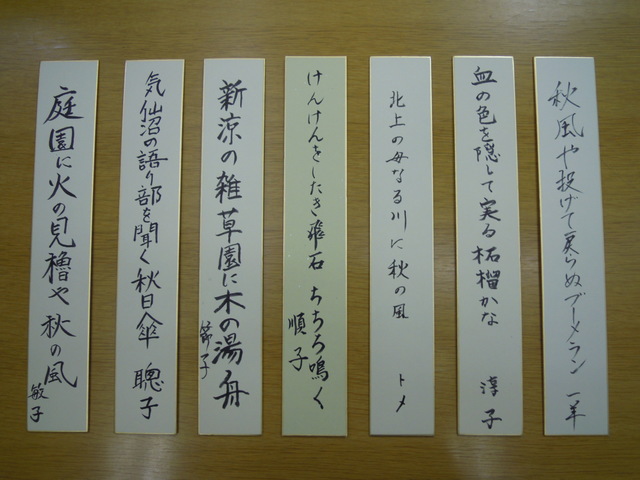 秋風や投げて戻らぬブーメラン 一羊
血の色を隠して実る柘榴かな 淳子
北上の母なる川に秋の風 トメ
けんけんをしたき飛石ちちろ鳴く 順子
新涼の雑草園に木の湯舟 節子
気仙沼の語り部を聞く秋日傘 聰子
庭園に火の見櫓や秋の風 敏子